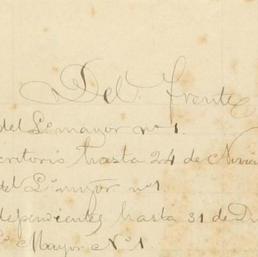 Del frente
del Lo mayor no 1.
critorio hasta 24 de Novie
del Lo mayor no 1
dependientes hasta 31 de Di
Lo Mayor No 1